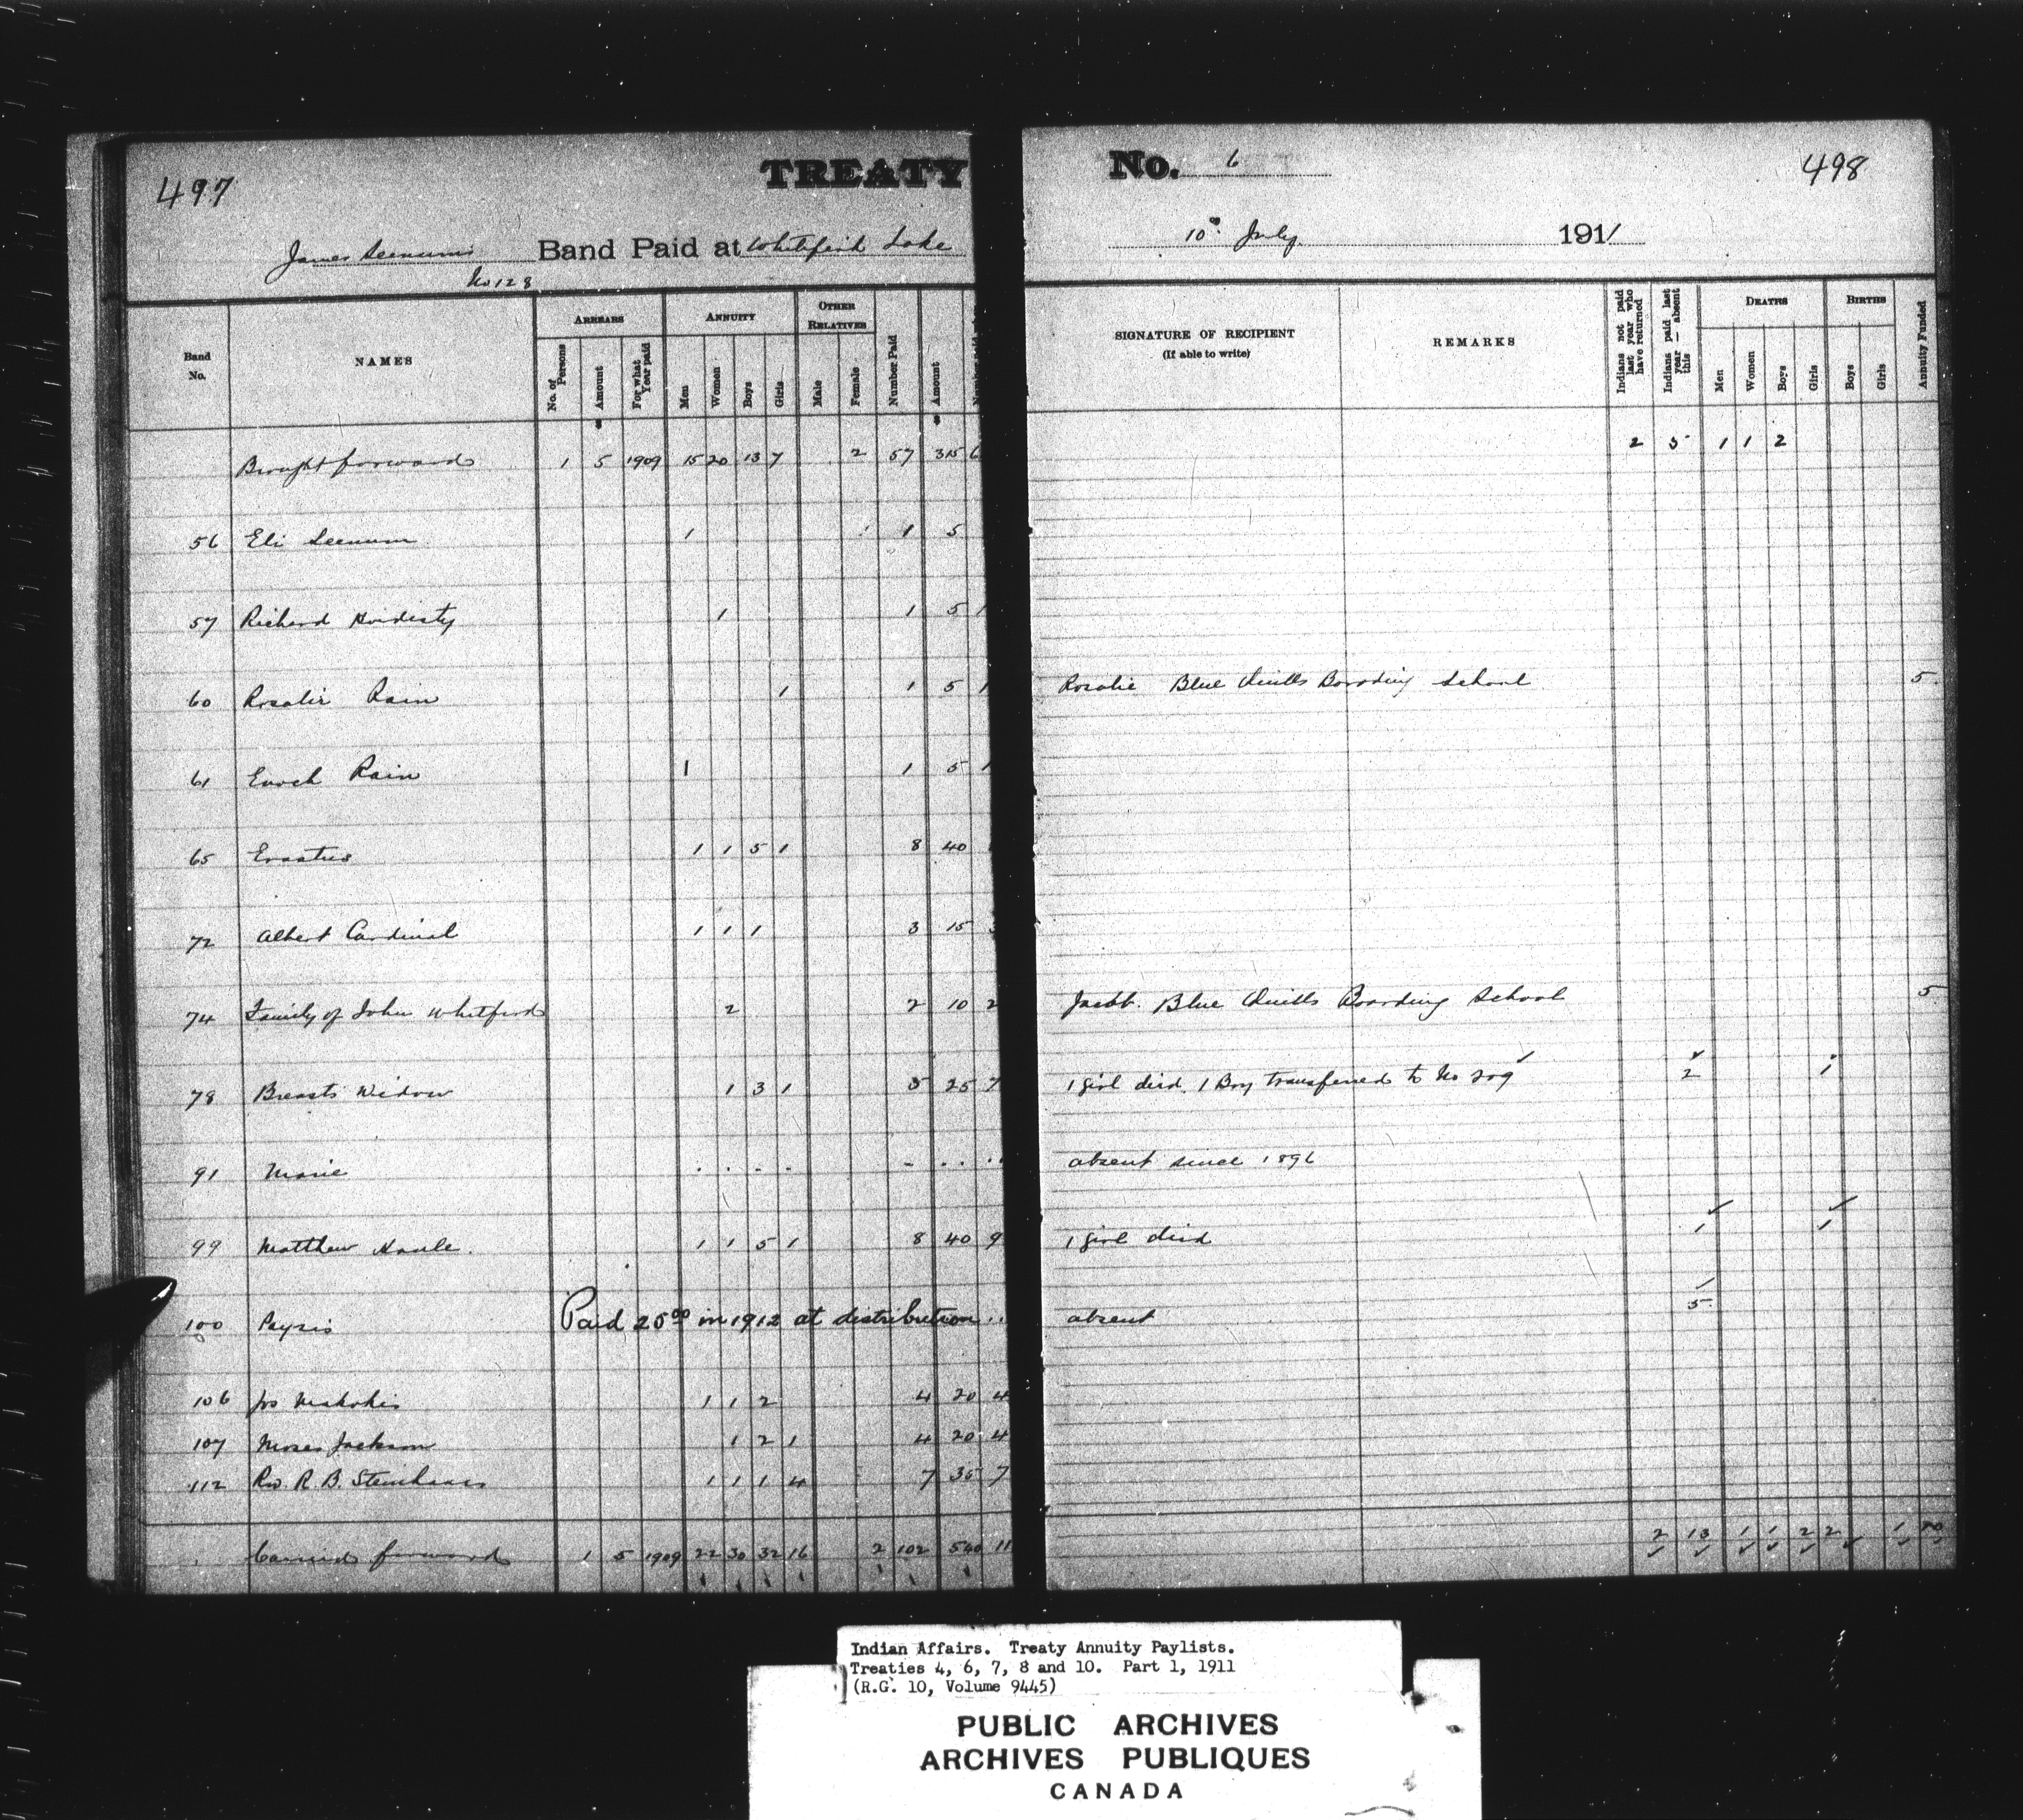 497
TREATY
No. 6
498
James Seenum's Band Paid at Whitefish Lake
No 128
10th July 1911
Band No.
NAMES
ARREARS
No. of Persons
Amount
For what Year paid
ANNUITY
Men
Women
Boys
Girls
OTHER RELATIVES
Male
Female
Number Paid
Amount
SIGNATURE OF RECIPIENT
(If able to write)
REMARKS
Indians not paid last year who have returned
Indians paid last year — absent this
DEATHS
Men
Women
Boys
Girls
BIRTHS
Boys
Girls
Annuity Funded
Brought forward 1 5 1909 15 20 13 7 2 57 315 6 2 5 1 1 2
56 Eli Seenum 1 1 5
57 Richard Hardisty 1 1 5 1
60 Rosalie Rain 1 1 5 1 Rosalie Blue Quills Boarding School 5
61 Enoch Rain 1 1 5 1
65 Erastus 1 1 5 1 8 40
72 Albert Cardinal 1 1 1 3 15 3
74 Family of John Whitford 2 2 10 2 Jacob. Blue Quills Boarding School 5
78 Breasts Widow 1 3 1 5 25 7 1 girl died. 1 Boy transferred to No 209 2 1
91 Marie absent since 1896
99 Matthew Houle. 1 1 5 1 8 40 9 1 girl died 1 1
100 Paysis Paid 25 00 in 1912 at distribution absent 5
106 Jos Makokis 1 1 2 4 20 4
107 Moses Jackson 1 2 1 4 20 4
112 Rev. R. B. Steinhauer 1 1 1 4 7 35 7
Carried forward 1 5 1909 22 30 32 16 2 102 540 11 2 13 1 1 2 2 1
Indian Affairs. Treaty Annuity Paylists.
Treaties 4, 6, 7, 8 and 10. Part 1, 1911
(R.G. 10, Volume 9445)
PUBLIC ARCHIVES
ARCHIVES PUBLIQUES
CANADA